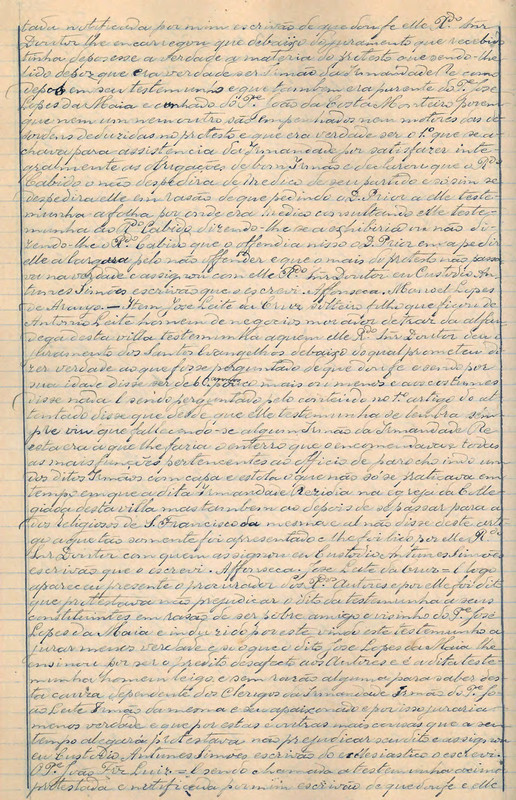 tada notificada por mim escrivão de que dou fe elle R.do Snr
Doutor lhe encarregou que debaixo do juramento que recebido
tinha deposesse a verdade a materia do protesto que sendo-lhe
lido depoz que era verdade ser Irmão da Irmandade Re como
depoz em seu testemunho e que tambem era parente do P.e José
Lopes da Maia e cunhado do P.e João da Costa Monteiro porem
que nem um nem outro são empenhados nem motores das de
sordens deduzidas no protesto e que era verdade ser o 1.º que se a-
chava para assistencia da Irmandade por satisfazer inte-
gralmente as obrigações de bom Irmão e declarou que o R.do
Cabido o não despedira de Medico de seu partido e só sim se
despedira elle em rasão de que pedindo o D. Prior a elle teste-
munha a folha por onde era Medico consultando elle teste-
munha ao R.do Cabido dizendo-lhe se a exhibiria ou não di-
zendo-lhe o R.do Cabido que o offendia nisso o D. Prior em a pedir
elle a largara pelo não offender e que o mais do protesto não passa
va na verdade e assignou com elle R.do Snr Doutor eu Custodio An-
tunes Simões escrivão que o escrevi. Affonseca. Manoel Lopes
de Araujo. — Item José Leite da Cruz solteiro filho que ficou de
Antonio Leite homem de negocios morador detraz da alfan-
dega desta villa testemunha a quem elle R.do Snr Doutor deu o
juramento dos Santos Evangelhos debaixo do qual prometeu di-
zer verdade ao que fosse perguntado de que dou fe e sendo por
sua idade disse ser de annos mais ou menos e aos costumes
disse nada e sendo perguntado pelo contheudo no 1.º artigo do at-
tentado disse que desde que elle testemunha se lembra sem-
pre viu que fallecendo-se algum Irmão da Irmandade Re
esta era a que lhe fazia o enterro que o encomendava e todas
as mais funções pertencentes ao officio de parocho indo um
dos ditos Irmãos com capa e estola o que não só se praticava em
tempo em que a dita Irmandade rezidia na igreja da Colle-
giada desta villa mas tambem ao depois de se passar para a
dos religiosos de S. Francisco da mesma e al não disse deste arti-
go a que tão somente foi apresentado e lhe foi lido por elle R.do
Snr Doutor com quem assignou eu Custodio Antunes Simões
escrivão que o escrevi. Affonseca. José Leite da Cruz = E logo
appareceu presente o procurador dos R.dos Autores e por elle foi dito
que protestava não prejudicar o dito da testemunha a seus
constituintes em rasão de ser sobre amigo e visinho do P.e José
Lopes da Maia e induzido por este vindo este testemunho a
jurar menos verdade e só o que o dito José Lopes da Maia lhe
ensinou por ser o predito desafecto aos Autores e a dita teste-
munha homem leigo e sem rasão alguma para saber des-
ta causa dependente dos Clerigos da Irmandade Irmão do P.e Jo-
sé Leite Irmão da mesma e seu apaixonado e por isso juraria
menos verdade e que por estas e outras mais causas que a seu
tempo allegará protestava não prejudicar seu dito e assignou
eu Custodio Antunes Simões escrivão do ecclesiastico o escrevi
O P.e João Luiz = E sendo chamada a testemunha acima
protestada e notificada por mim escrivão de que dou fe e elle